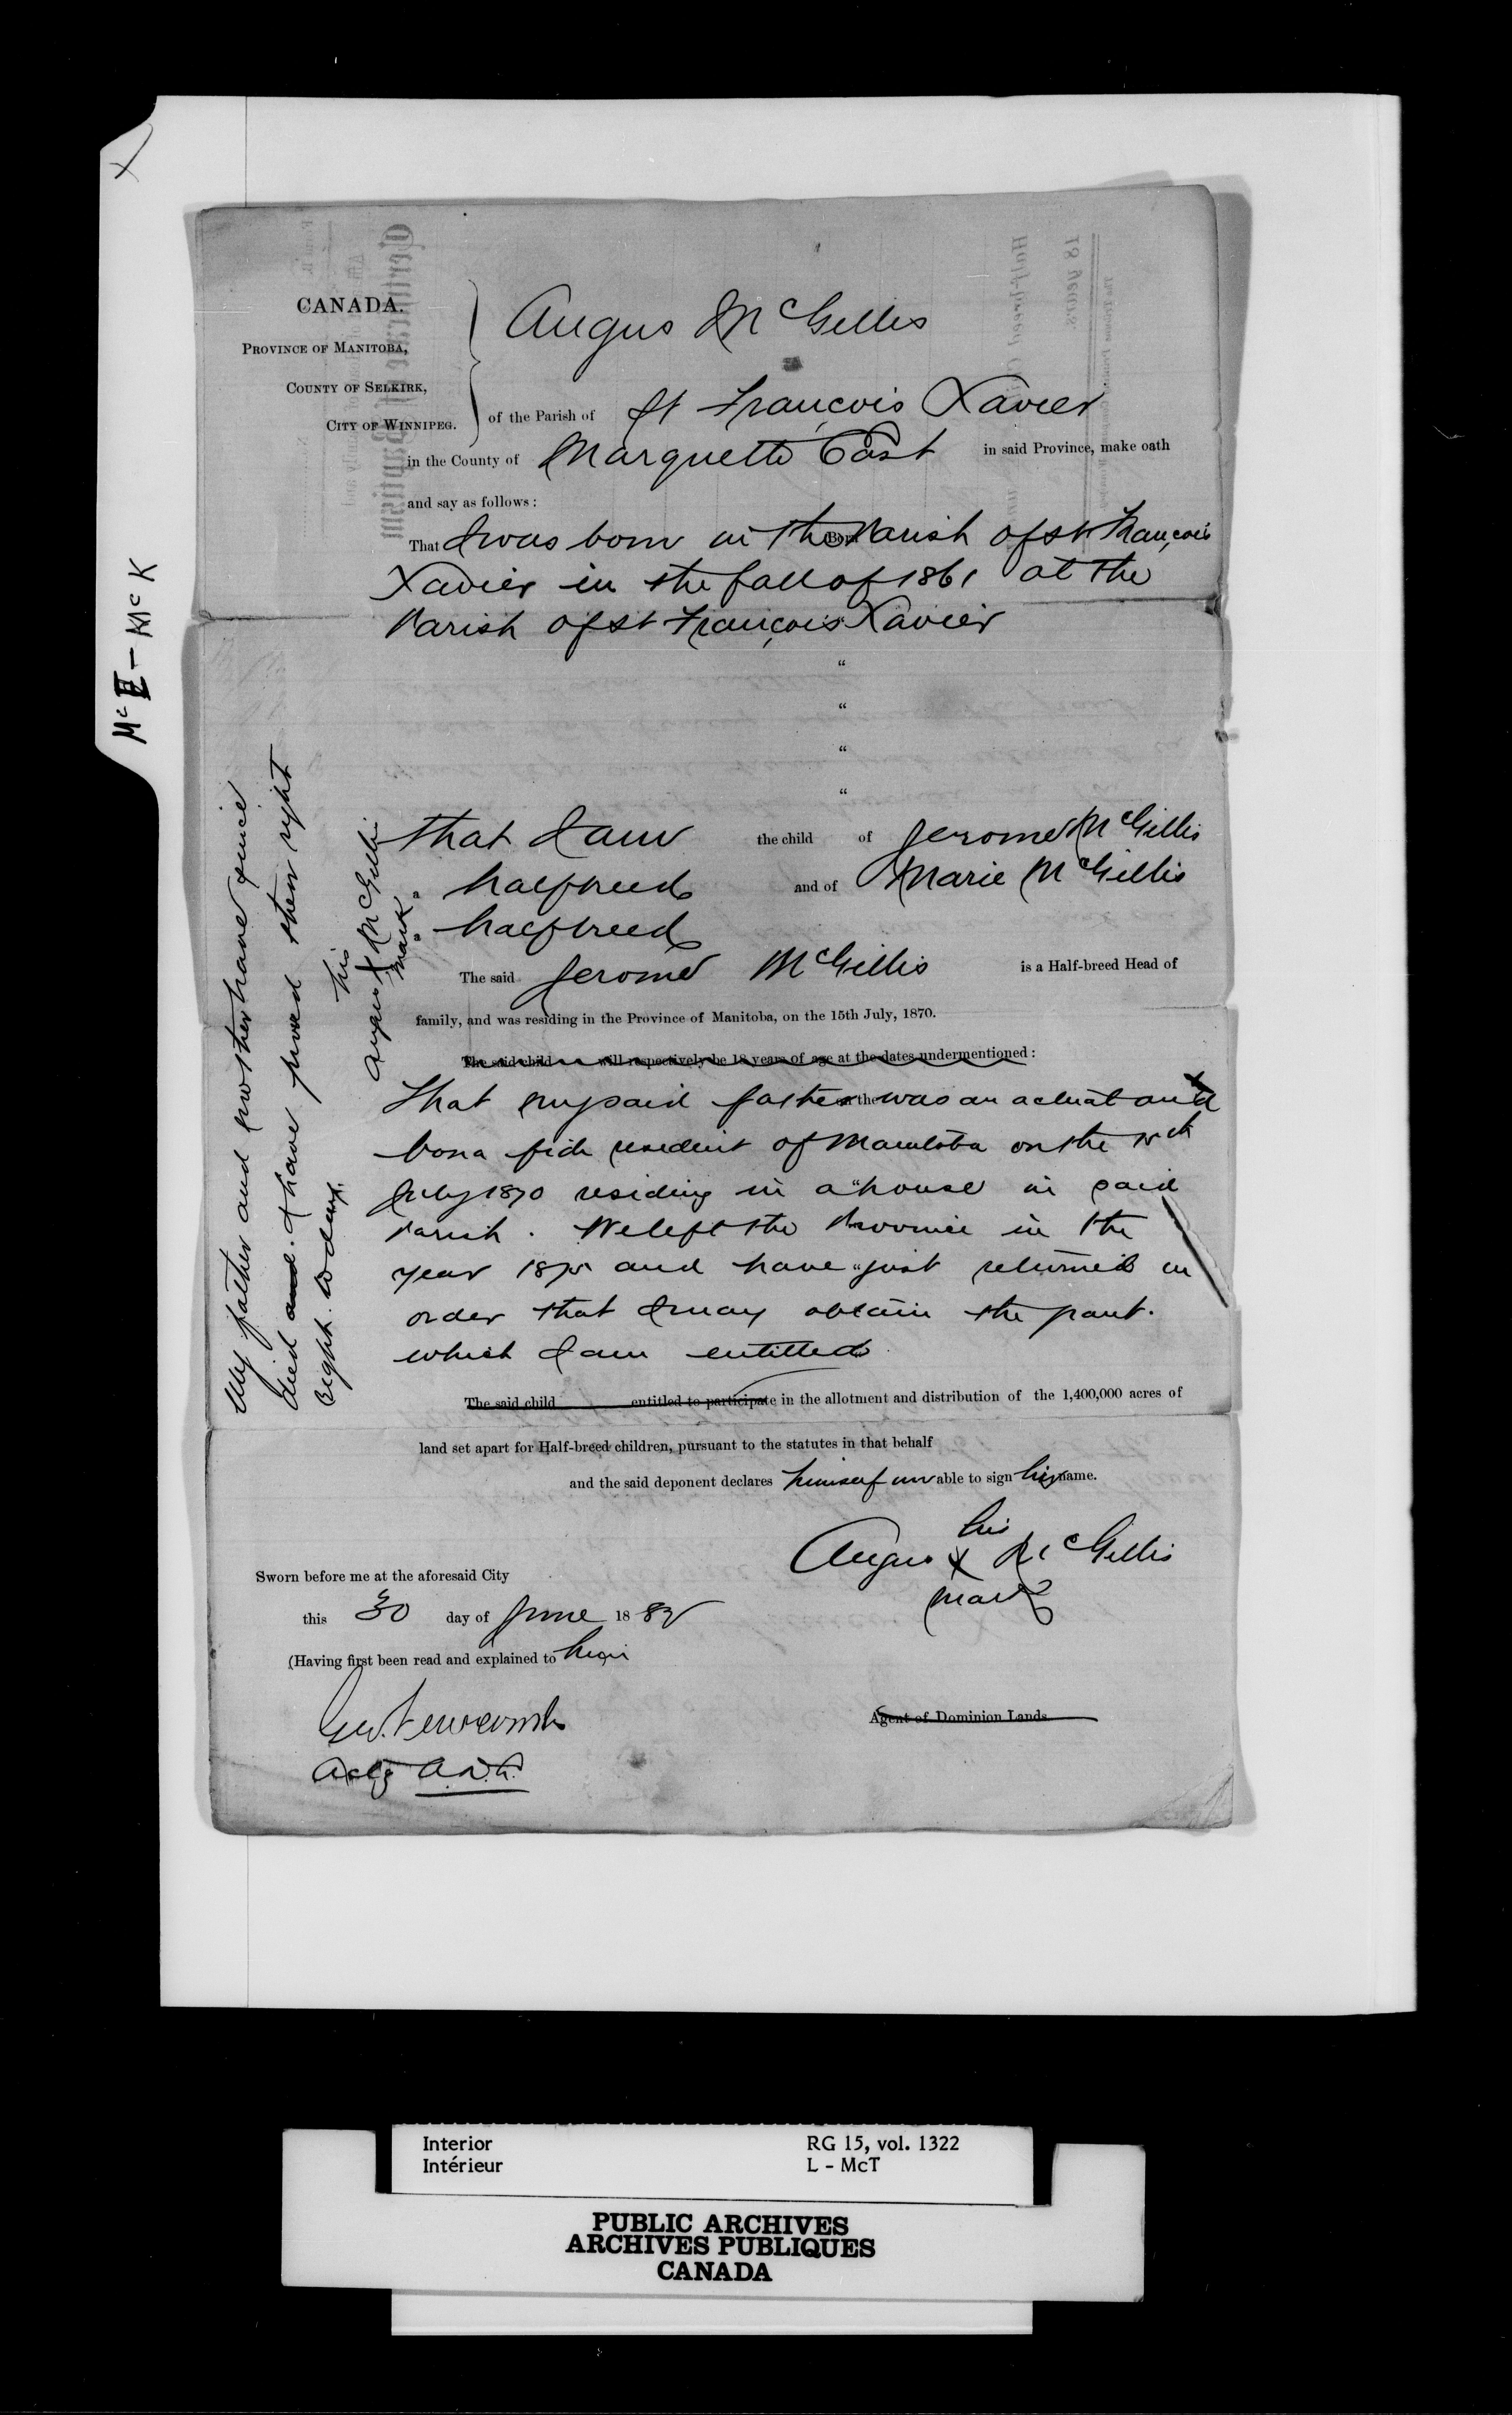 CANADA.
PROVINCE OF MANITOBA,
COUNTY OF SELKIRK,
CITY OF WINNIPEG.
Angus McGillis
of the Parish of St François Xavier
in the County of Marquette East in said Province, make oath
and say as follows:
That I was born in the Parish of St François
Xavier in the fall of 1861 at the
Parish of St François Xavier
“
“
“
“
that I am the child of Jerome McGillis
" halfbreed and of Marie McGillis
" halfbreed
The said Jerome McGillis is a Half-breed Head of
family, and was residing in the Province of Manitoba, on the 15th July, 1870.
The said child will respectively be 18 years of age at the dates undermentioned:
That my said father was an actual and
bona fide resident of Manitoba on the 15th
July 1870 residing in a house in said
Parish. We left the Province in the
year 1875 and have just returned in
order that I may obtain the grant.
which I am entitled
The said child entitled to participate in the allotment and distribution of the 1,400,000 acres of
land set apart for Half-breed children, pursuant to the statutes in that behalf
and the said deponent declares himself unable to sign his name.
his
Angus X McGillis
mark
Sworn before me at the aforesaid City
this 30 day of June 1882
(Having first been read and explained to him
Geo. Newcomb
Actg A.D.L.
Agent of Dominion Lands
My father and mother have since
died and I have proved their right
right to day.
his
Angus X McGillis
mark
McE - McK
Interior
Intérieur
RG 15, vol. 1322
L - McT
PUBLIC ARCHIVES
ARCHIVES PUBLIQUES
CANADA